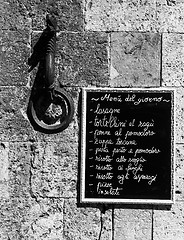 ~ Menù del giorno ~
- lasagne
- tortellini al ragù
- penne al pomodoro
- zuppa toscana
- pasta pesto e pomodoro
- risotto alla
- risotto allo scoglio
- risotto agli asparagi
- pizze
- insalate